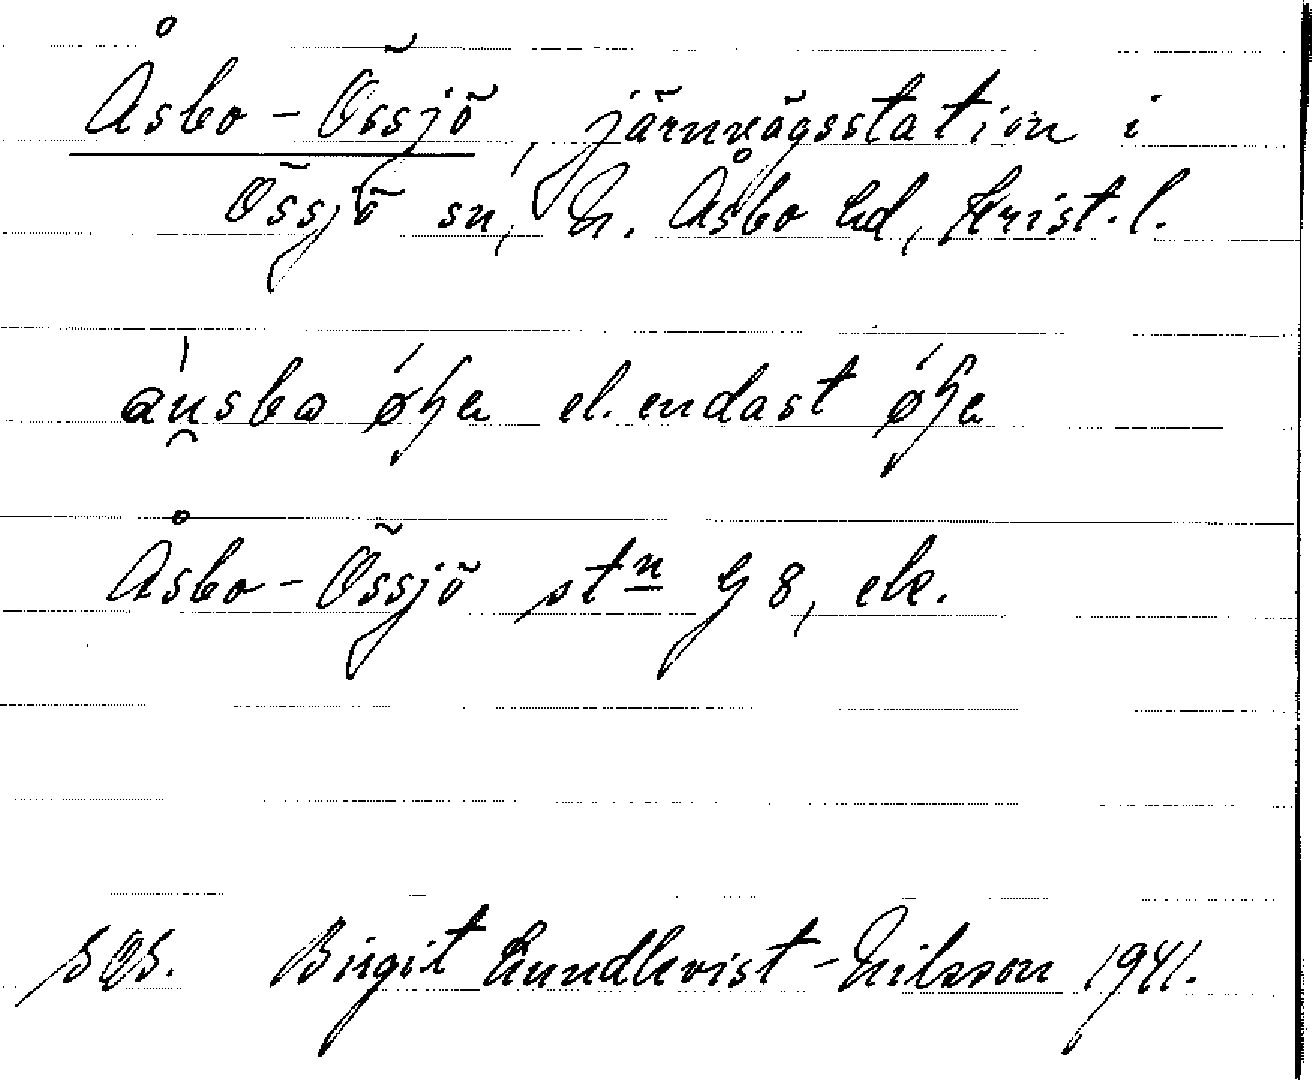 Åsbo-Össjö, järnvägsstation i
Össjö sn, N. Åsbo hd, Krist. l.
el. endast
Åsbo-Össjö stn G 8, ek.
Birgit Lundkvist-Nilsson 1941.